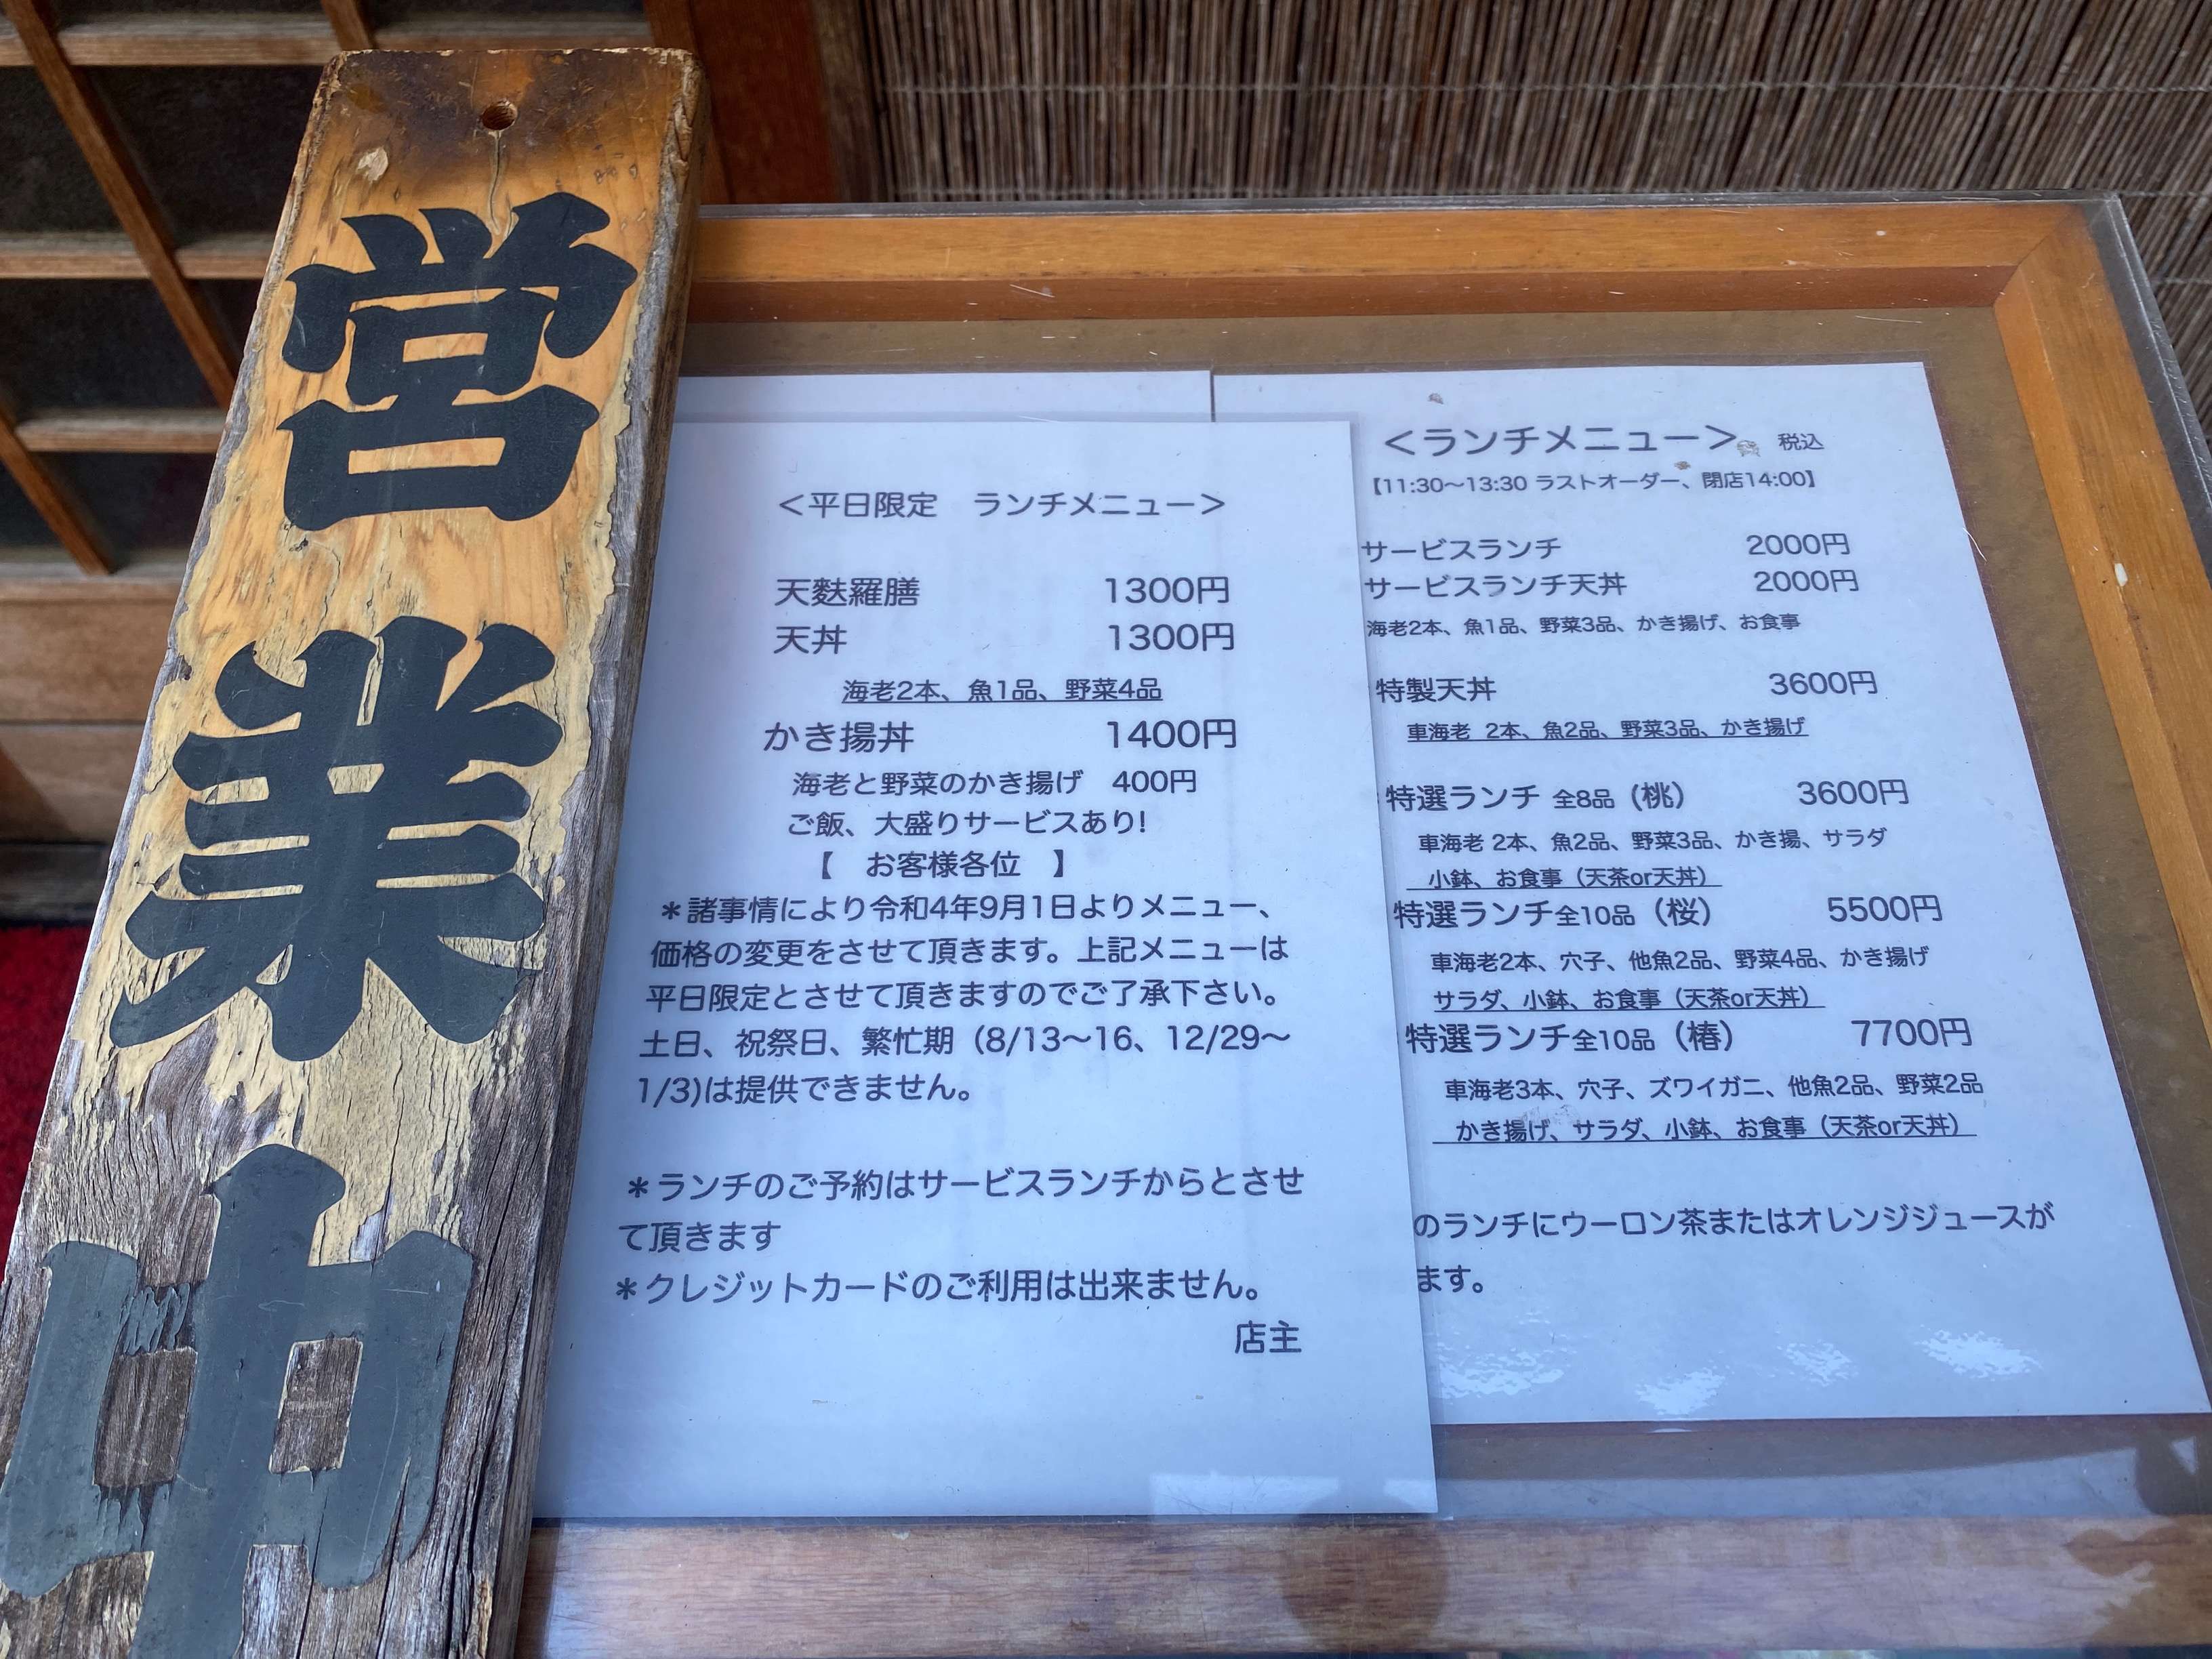 営業中
＜平日限定　ランチメニュー＞
天麩羅膳 1300円
天丼 1300円
海老2本、魚1品、野菜4品
かき揚丼 1400円
海老と野菜のかき揚げ 400円
ご飯、大盛りサービスあり!
【　お客様各位　】
＊諸事情により令和4年9月1日よりメニュー、
価格の変更をさせて頂きます。上記メニューは
平日限定とさせて頂きますのでご了承下さい。
土日、祝祭日、繁忙期（8/13〜16、12/29〜
1/3)は提供できません。
＊ランチのご予約はサービスランチからとさせ
て頂きます
＊クレジットカードのご利用は出来ません。
店主
＜ランチメニュー＞ 税込
【11:30〜13:30 ラストオーダー、閉店14:00】
サービスランチ 2000円
サービスランチ天丼 2000円
海老2本、魚1品、野菜3品、かき揚げ、お食事
特製天丼 3600円
車海老 2本、魚2品、野菜3品、かき揚げ
特選ランチ 全8品（桃） 3600円
車海老 2本、魚2品、野菜3品、かき揚、サラダ
小鉢、お食事（天茶or天丼）
特選ランチ全10品（桜） 5500円
車海老2本、穴子、他魚2品、野菜4品、かき揚げ
サラダ、小鉢、お食事（天茶or天丼）
特選ランチ全10品（椿） 7700円
車海老3本、穴子、ズワイガニ、他魚2品、野菜2品
かき揚げ、サラダ、小鉢、お食事（天茶or天丼）
のランチにウーロン茶またはオレンジジュースが
ます。